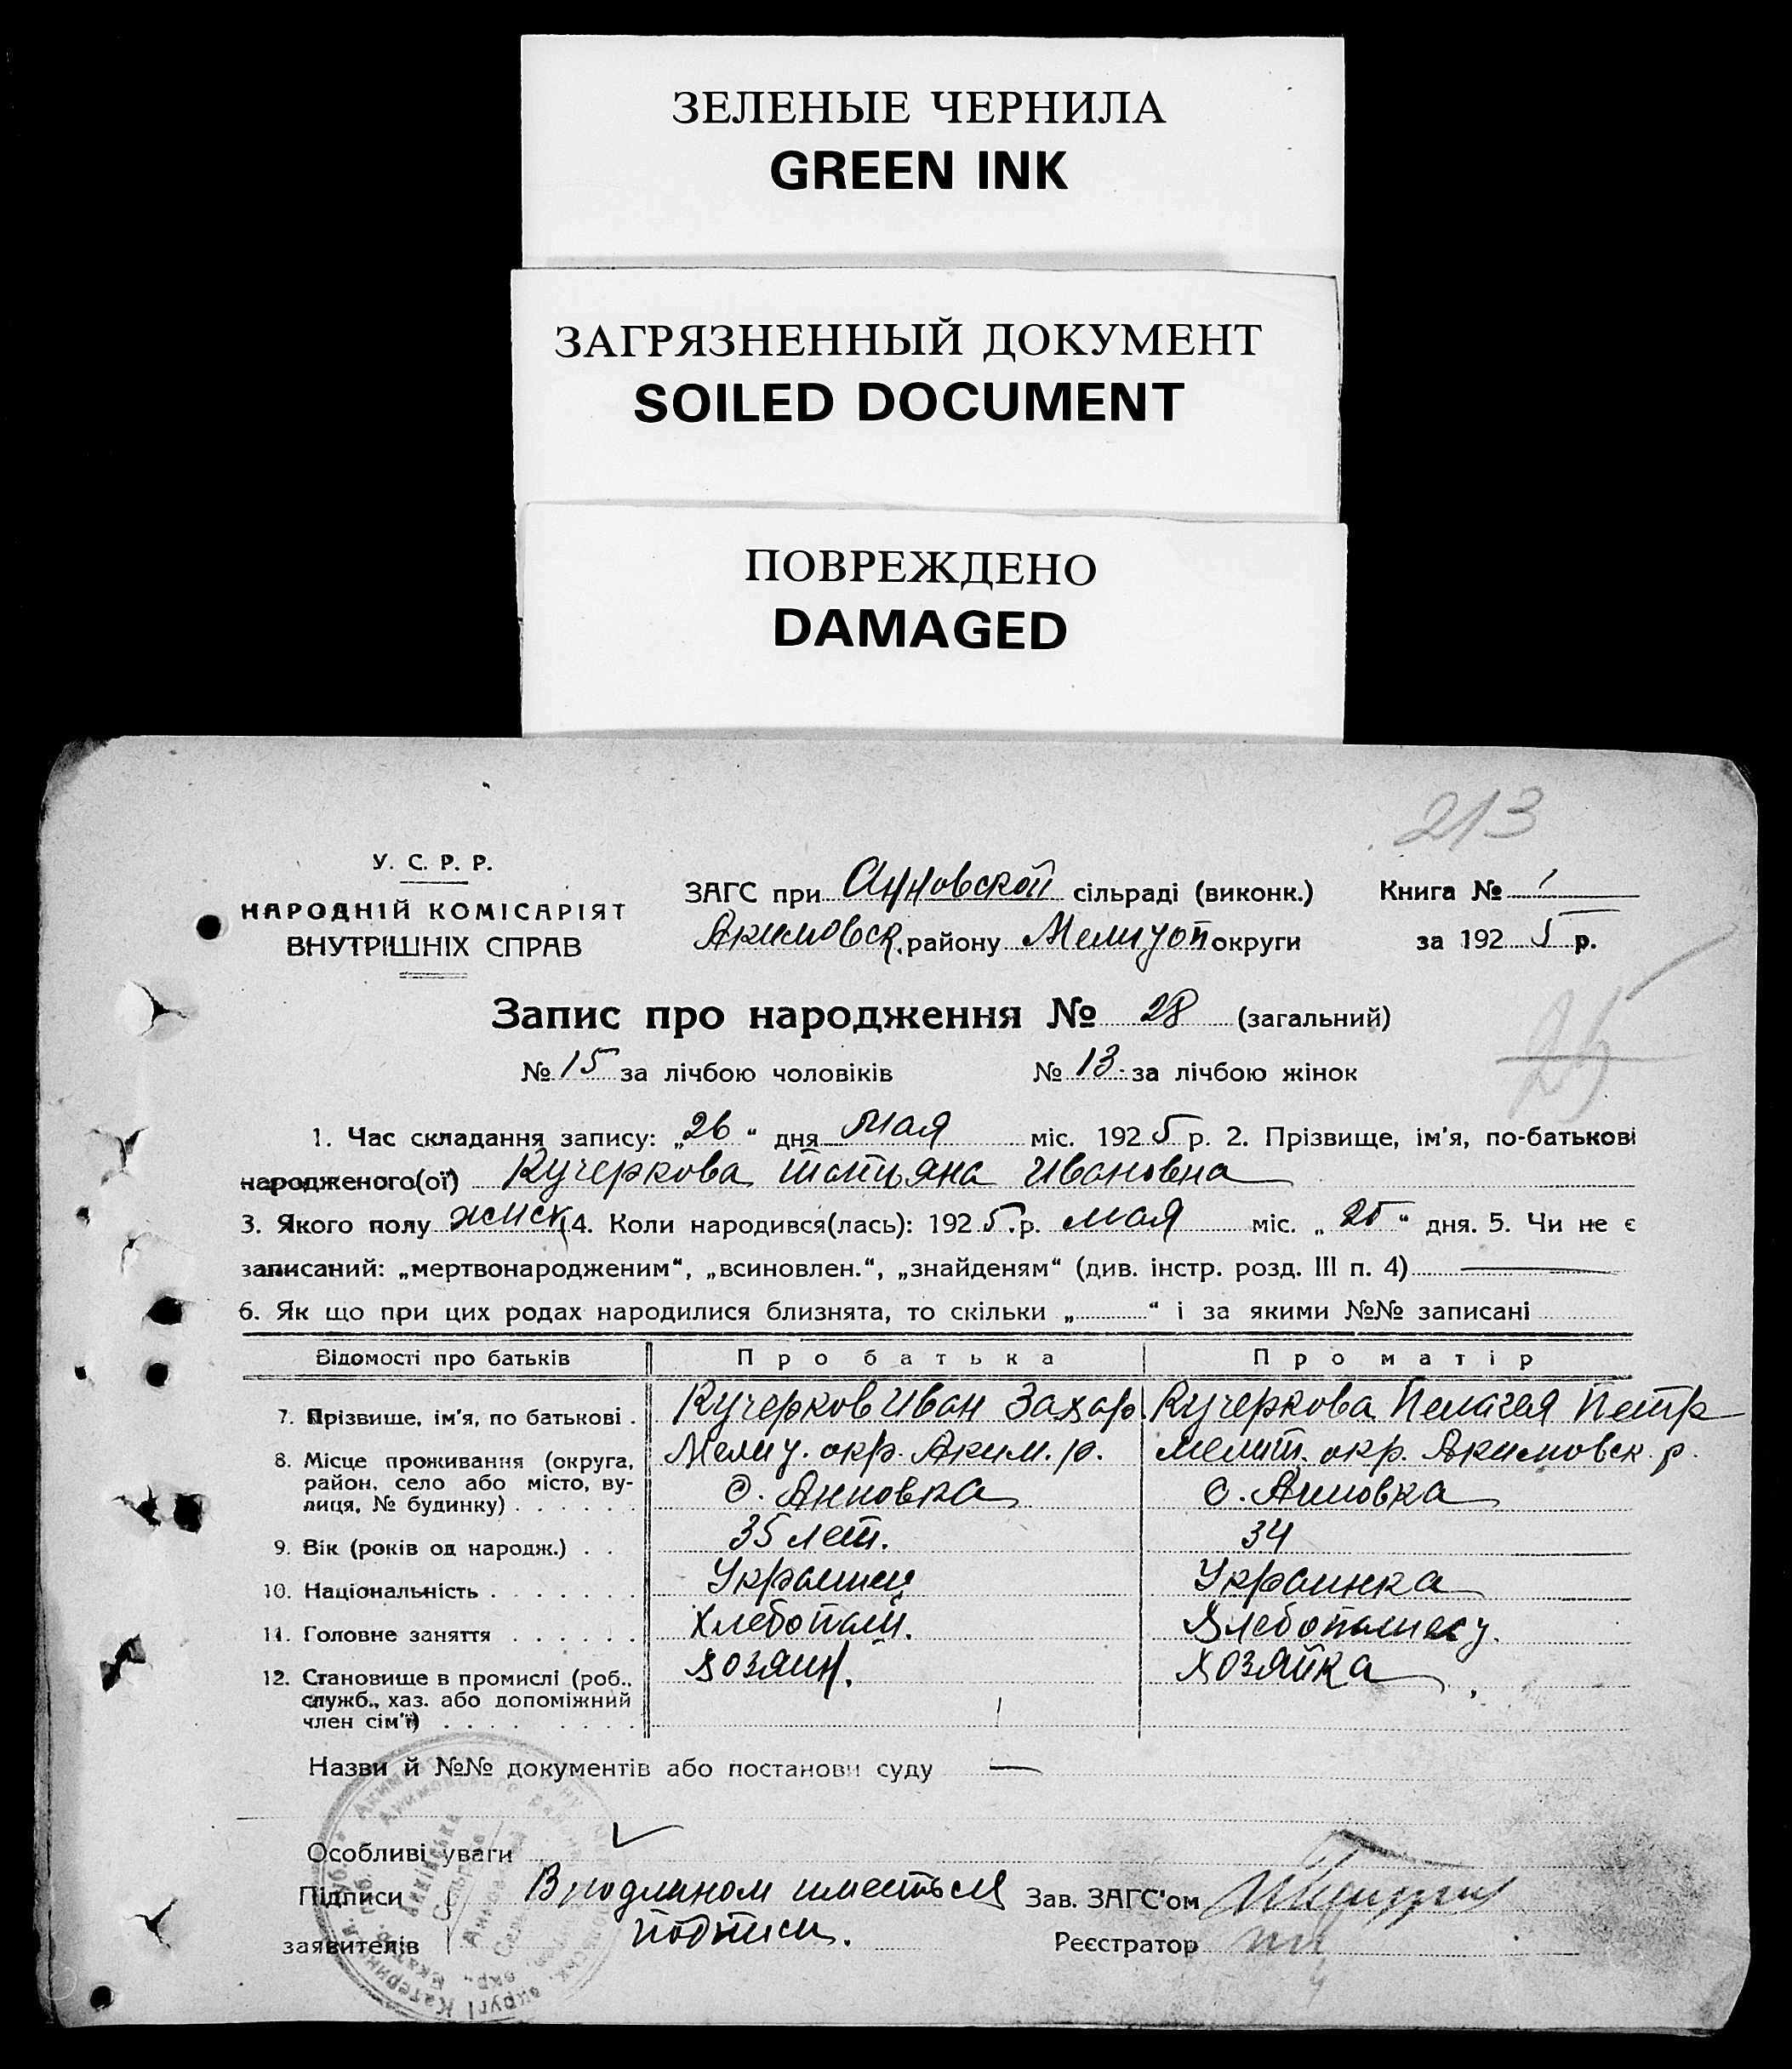 ЗЕЛЕНЫЕ ЧЕРНИЛА
GREEN INK
ЗАГРЯЗНЕННЫЙ ДОКУМЕНТ
SOILED DOCUMENT
ПОВРЕЖДЕНО
DAMAGED
213
У. С. Р. Р.
НАРОДНІЙ КОМІСАРІЯТ
ВНУТРІШНІХ СПРАВ
ЗАГС при Анновской сільраді (виконк.) Книга № 1
Акимовск. району Мелитоп округи за 1925 р.
25
Запис про народження № 28 (загальний)
№ 15 за лічбою чоловіків № 13. за лічбою жінок
1. Час складання запису: „26“ дня мая міс. 1925 р. 2. Прізвище, ім'я, по-батькові
народженого(ої) Кучеркова Татьяна Ивановна
3. Якого полу женск 4. Коли народився(лась): 1925.р. мая міс. „25“ дня. 5. Чи не є
записаний: „мертвонародженим“, „всиновлен.“, „знайденям“ (див. інстр. розд. III п. 4)
6. Як що при цих родах народилися близнята, то скільки „ “ і за якими №№ записані
Відомості про батьків Про батька Про матір
7. Прізвище, ім'я, по батькові . Кучерков Иван Захар. Кучеркова Пелагея Петр
8. Місце проживання (округа, район, село або місто, вулиця, № будинку) . . . . . . Мелит. окр. Аким. р. Мелит. окр. Акимовск. р.
с. Анновка с. Анновка
9. Вік (років од народж.) . . 35 лет. 34
10. Національність . . . . . . . Украинец Украинка
11. Головне заняття . . . . . . Хлебопаш. Хлебопашец
12. Становище в промислі (роб., служб., хаз. або допоміжний член сім'ї) . . . . . . . . хозяин. хозяйка
Назви й №№ документів або постанови суду —
Особливі уваги
Підписи В подлином имеється Зав. ЗАГС'ом
заявителів подписи. Реєстратор